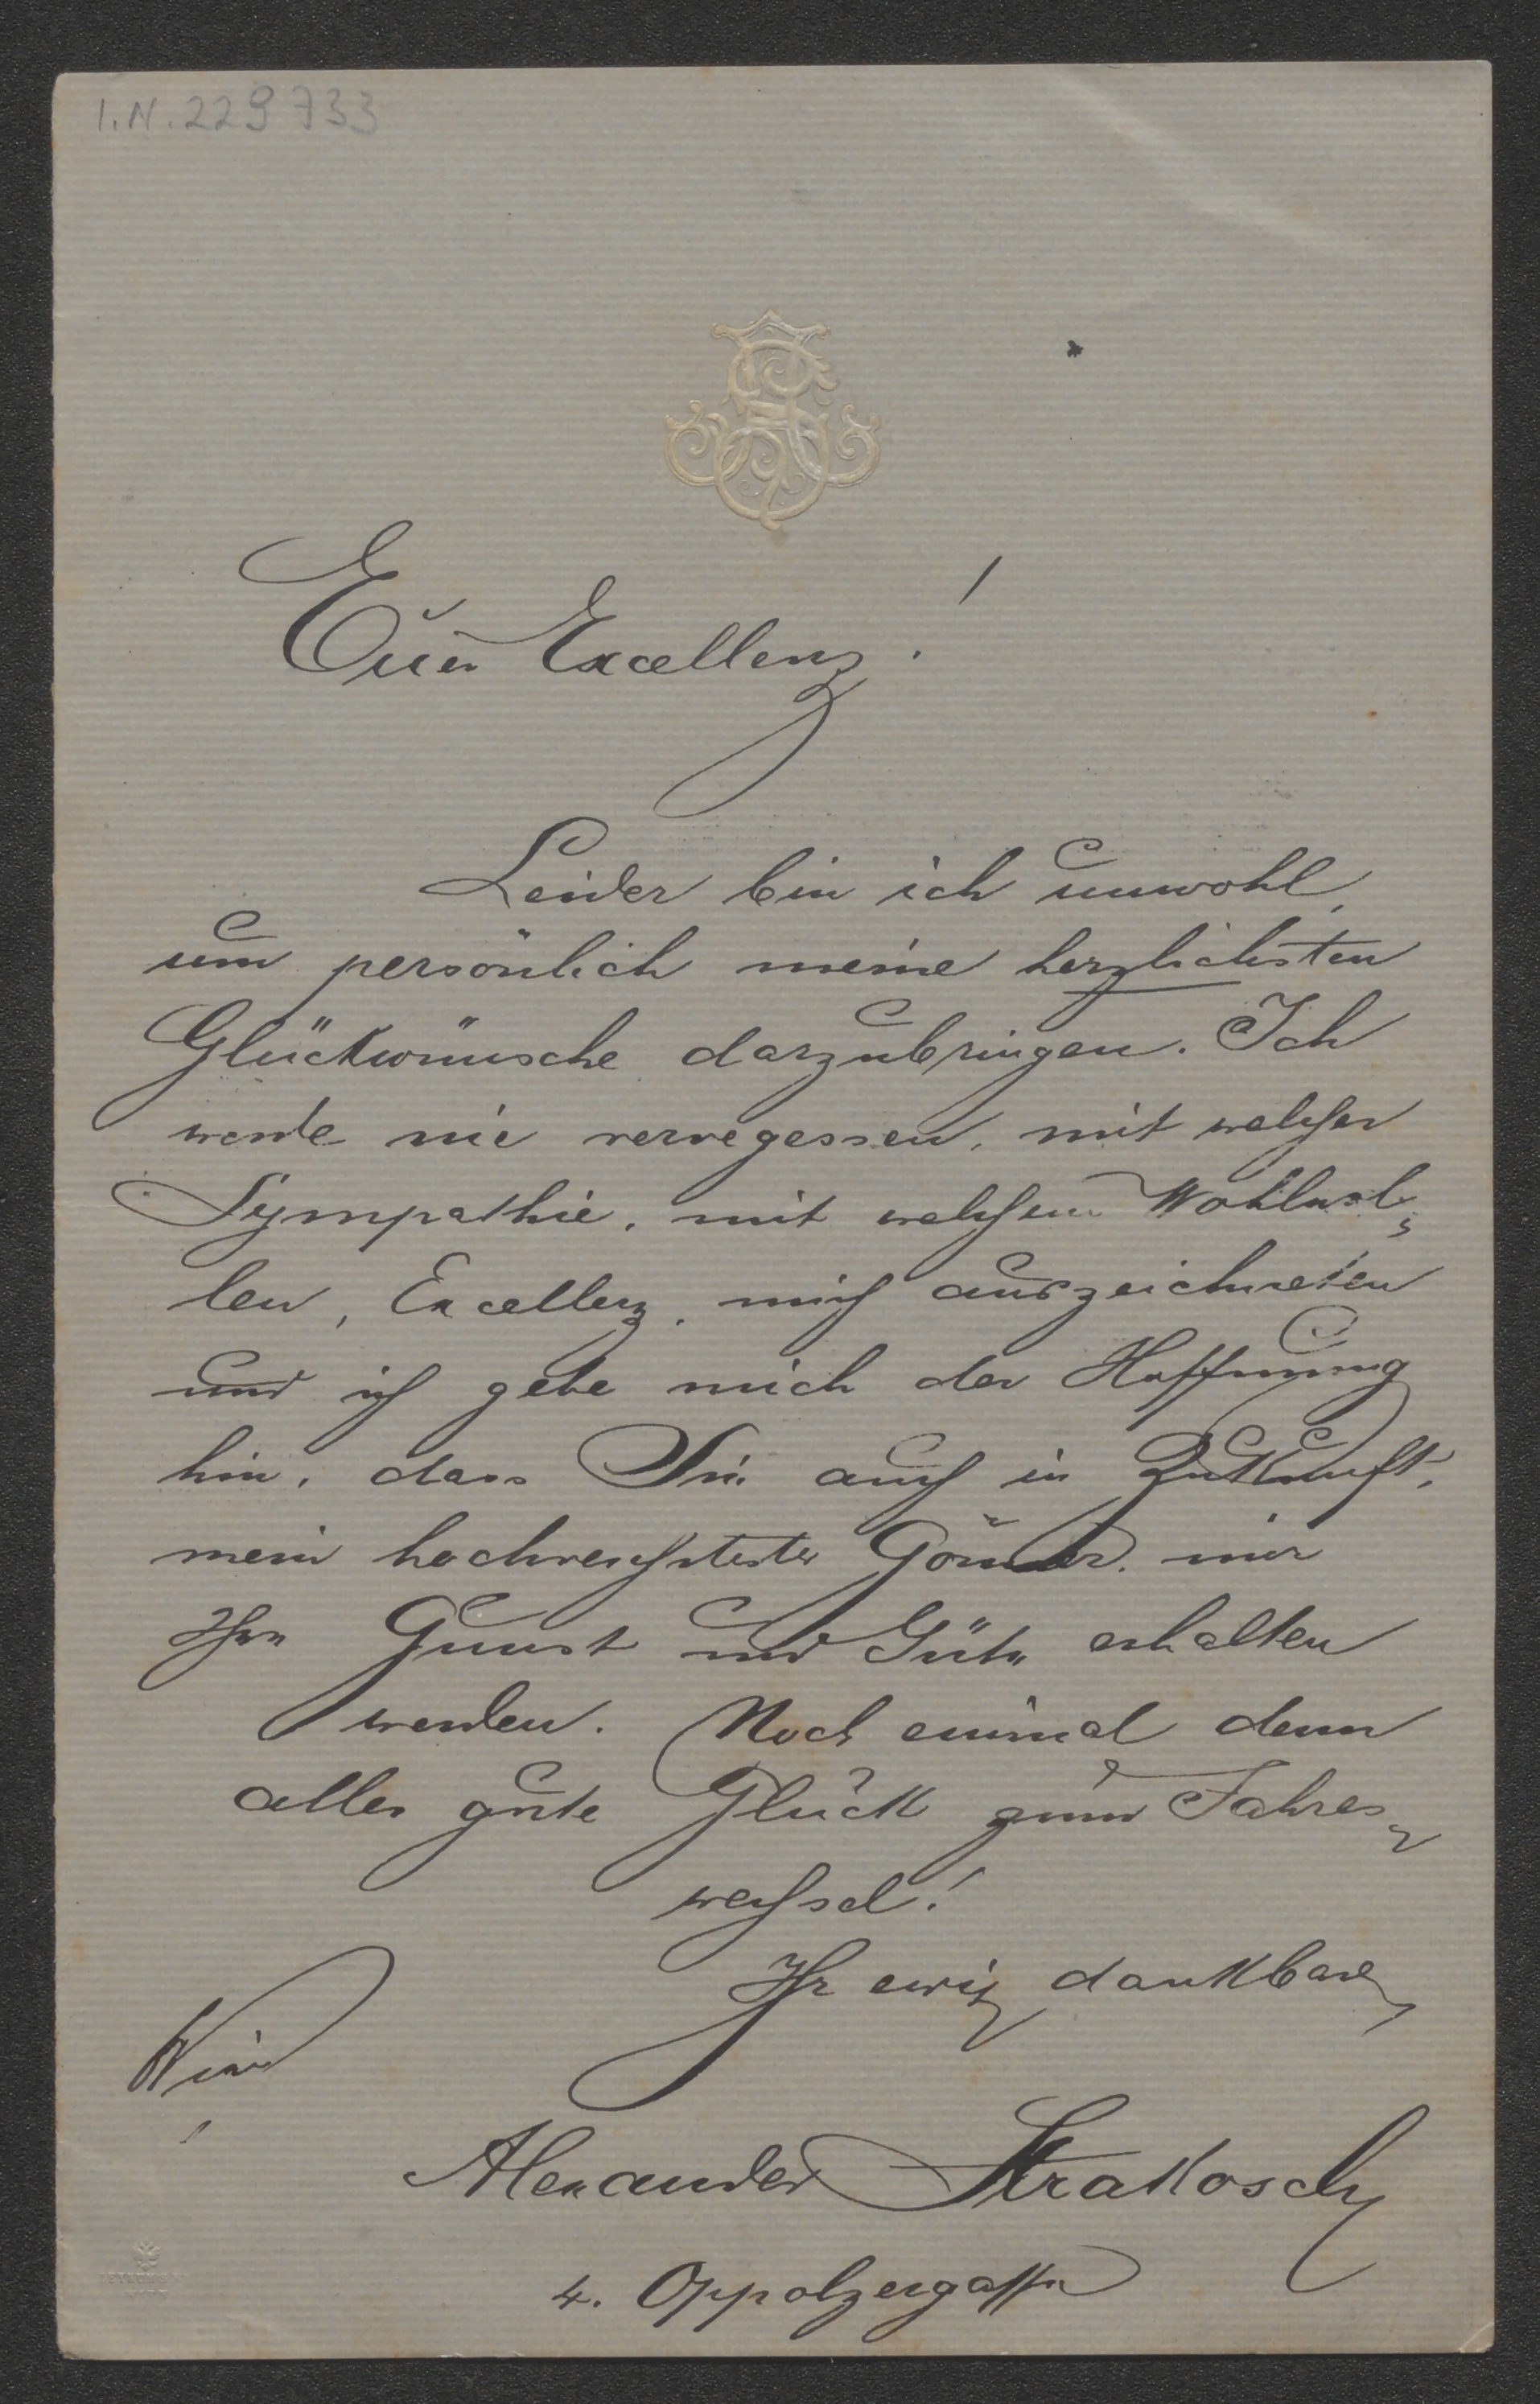 I.N. 229733
Euer Excellenz!
Leider bin ich unwohl,
um persönlich meine herzlichsten
Glückwünsche darzubringen. Ich
werde nie vervegessen, mit welcher
Sympathie, mit welchem Wohlwol-
len, Excellenz, mich auszeichneten
und ich gebe mich der Hoffnung
hin, dass Sie auch in Zukunft,
mein hochverehrtester Gönner, mir
Ihre Gunst und Güte erhalten
werden. Noch einmal denn
alles gute Glück zum Jahres-
wechsel!
Ihr ewig dankbarer
Wien
Alexander Strakosch
4. Oppolzergasse